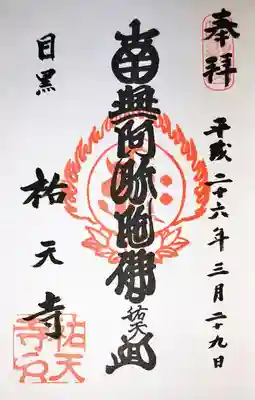 奉拝
平成二十六年三月二十九日
南無阿弥陀佛
祐天
目黒
祐天寺